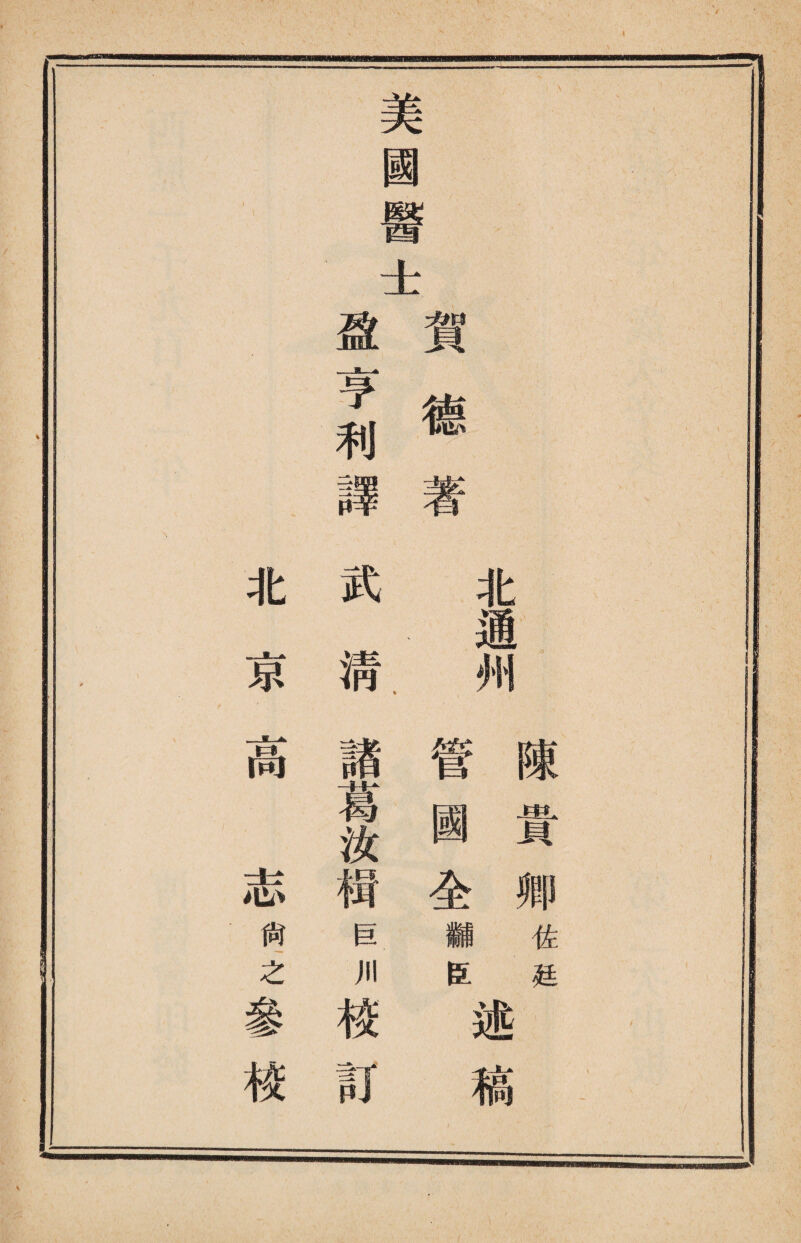 美國醫士
賀德著
盈亨利譯
北通州
陳貴卿佐廷
管國全黼臣
述稿
武清諸葛汝楫巨川校訂
北京高志尙之參校